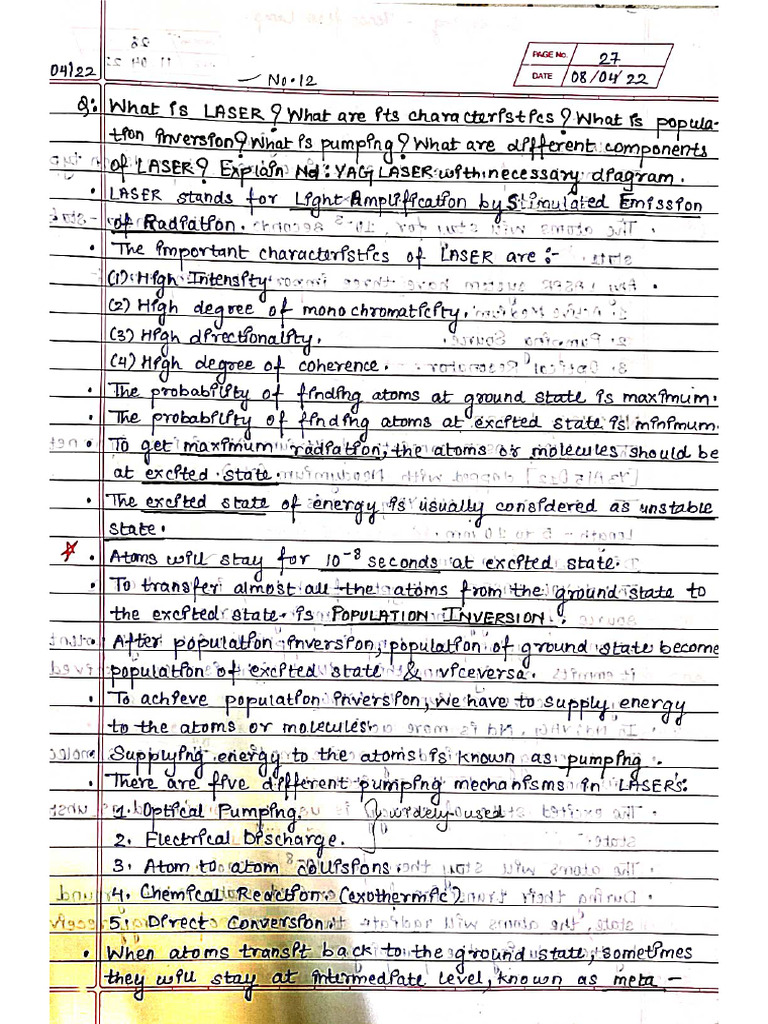 PAGE No. 27
04/22
DATE 08/04/22
No. 12
Q: What is LASER? What are its characteristics? What is popula-
tion inversion? What is pumping? What are different components
of LASER? Explain Nd: YAG LASER with necessary diagram.
• LASER stands for Light Amplification by Stimulated Emission
of Radiation.
• The important characteristics of LASER are :-
(1) High Intensity.
(2) High degree of monochromaticity.
(3) High directionality.
(4) High degree of coherence.
• The probability of finding atoms at ground state is maximum.
• The probability of finding atoms at excited state is minimum.
• To get maximum radiation, the atoms or molecules should be
at excited state.
• The excited state of energy is usually considered as unstable
state.
• Atoms will stay for 10⁻⁸ seconds at excited state.
• To transfer almost all the atoms from the ground state to
the excited state is POPULATION INVERSION.
• After population inversion, population of ground state become
population of excited state & viceversa.
• To achieve population inversion, we have to supply energy
to the atoms or molecules.
• Supplying energy to the atoms is known as pumping.
• There are five different pumping mechanisms in LASER's:
1. Optical Pumping. } widely used
2. Electrical Discharge.
3. Atom to atom collisions.
4. Chemical Reaction (exothermic)
5. Direct Conversion.
• When atoms transit back to the ground state, sometimes
they will stay at intermediate level, known as meta -